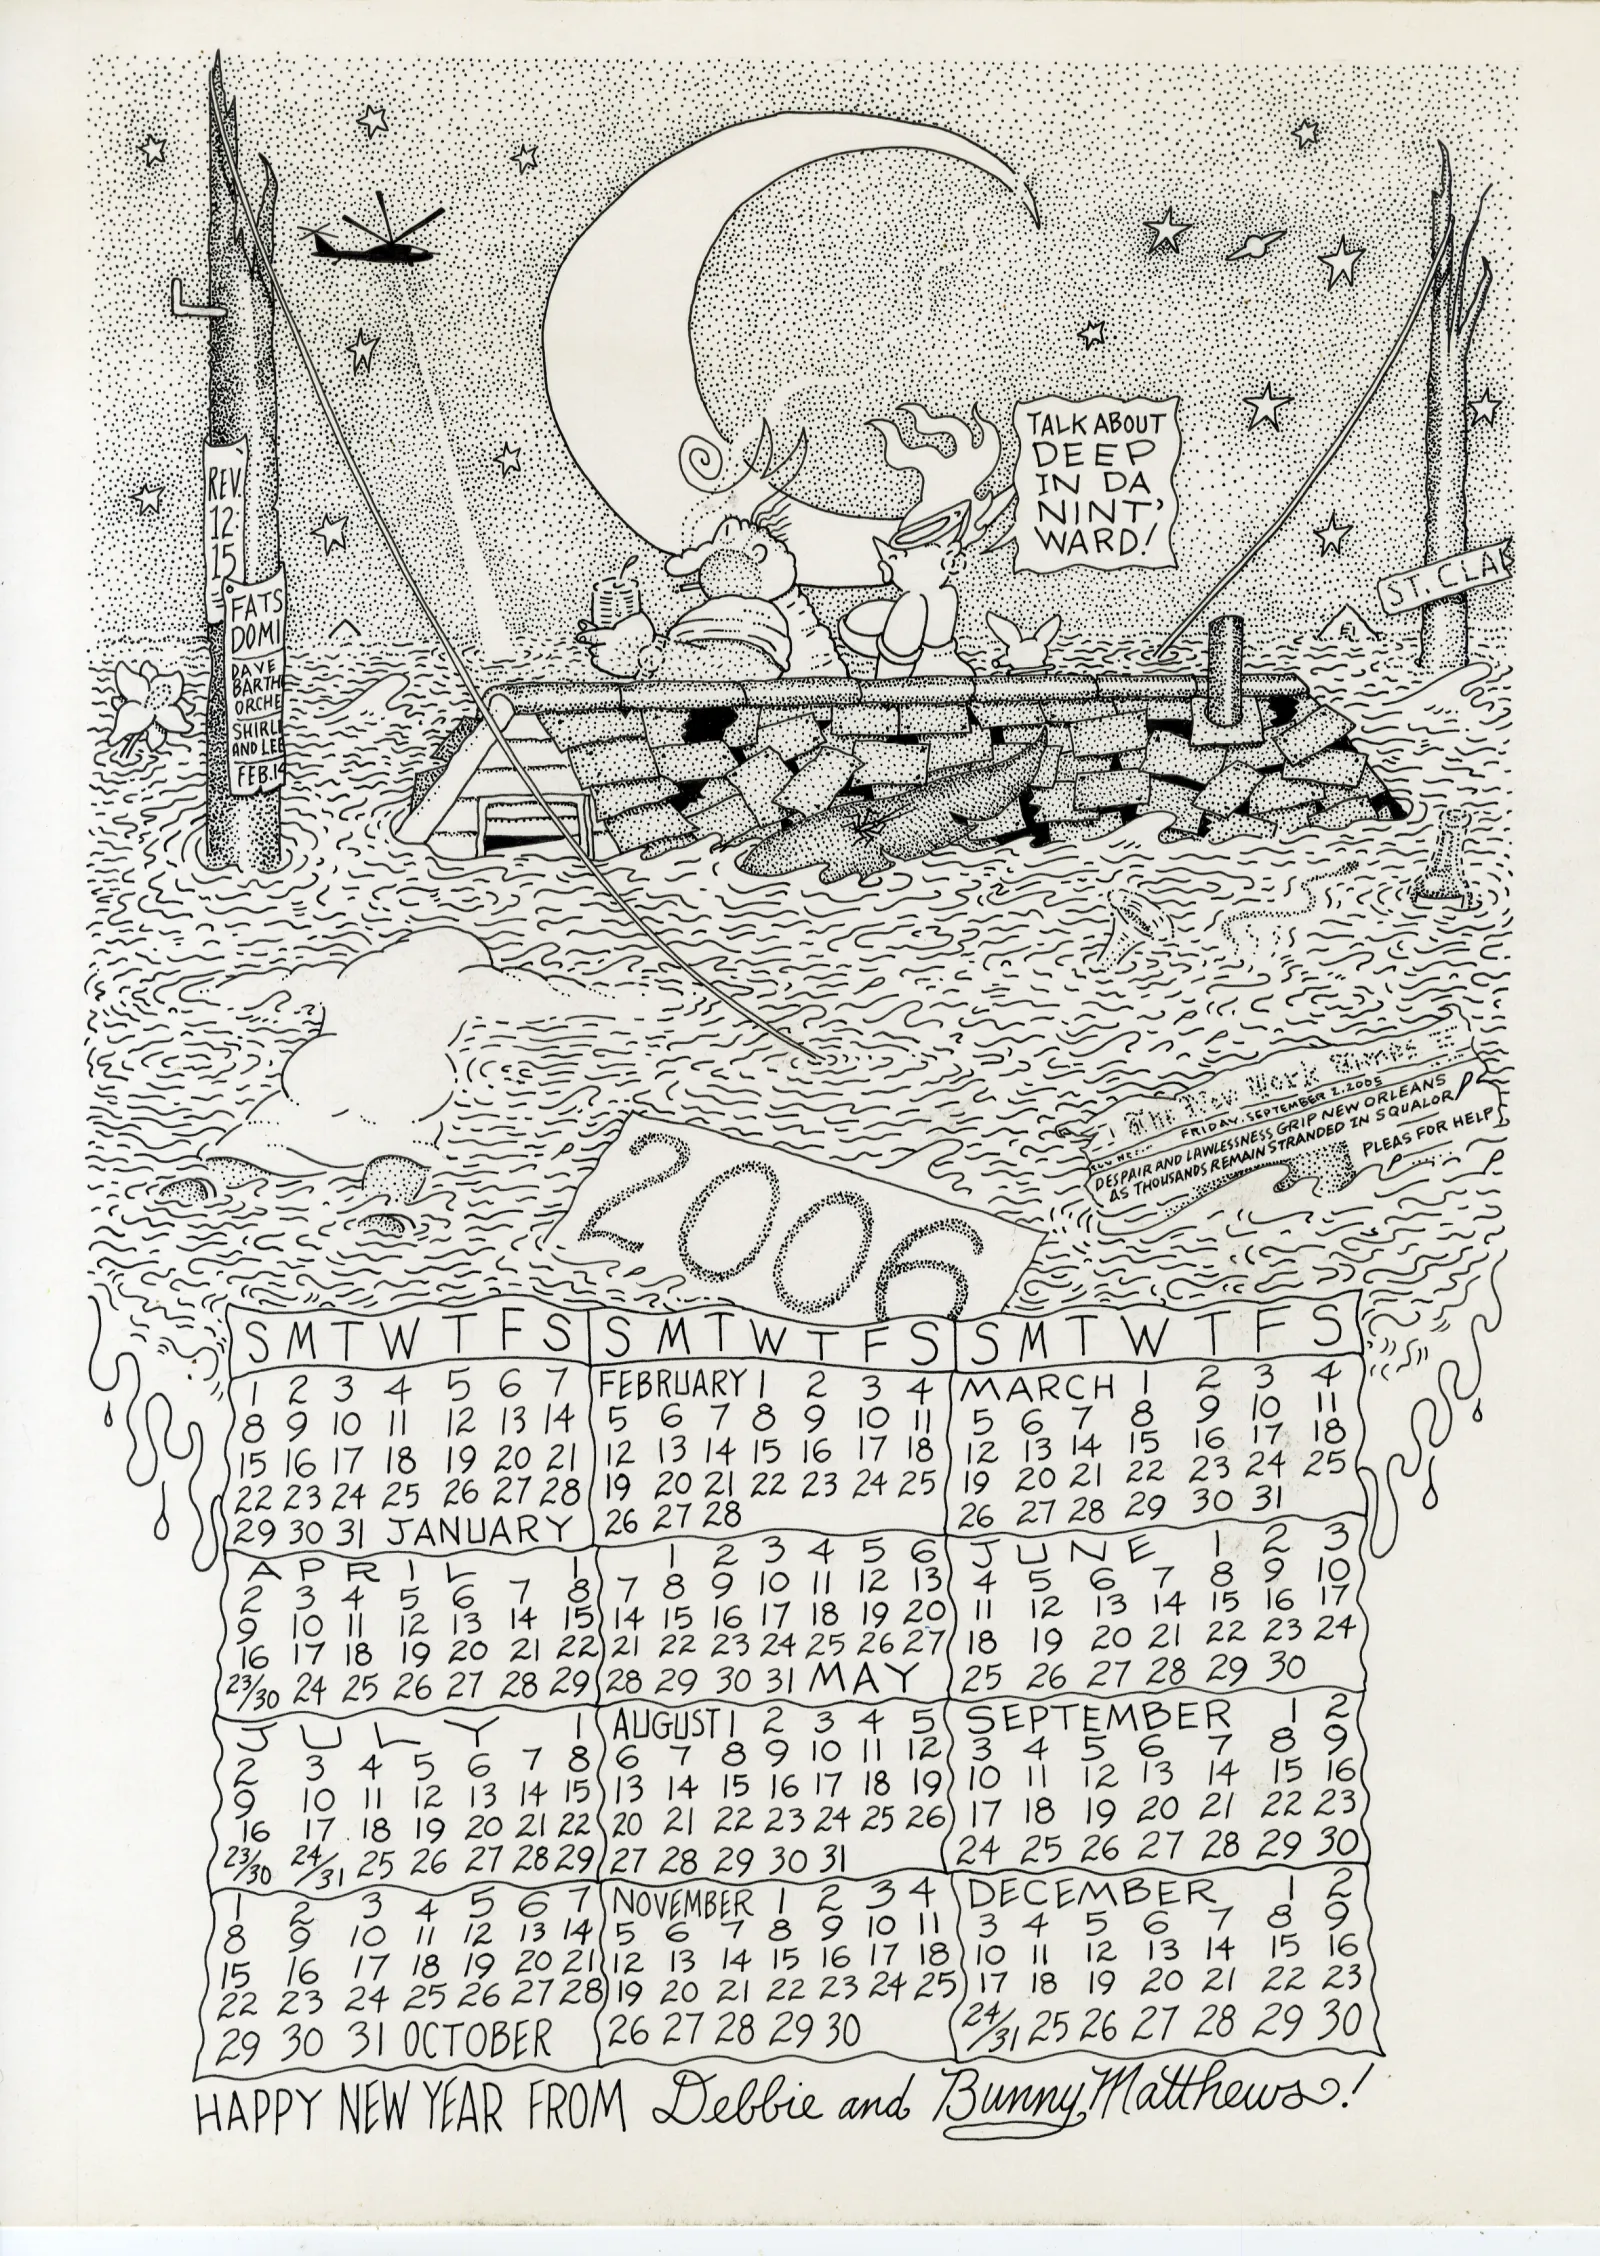 TALK ABOUT
DEEP
IN DA
NINT'
WARD!
REV.
12
15
FATS
DOMI
DAVE
BARTH
ORCHE
SHIRL
AND LEE
FEB. 14
ST. CLA
The New Work Times
FRIDAY, SEPTEMBER 2, 2005
DESPAIR AND LAWLESSNESS GRIP NEW ORLEANS
AS THOUSANDS REMAIN STRANDED IN SQUALOR
PLEAS FOR HELP
2006
S M T W T F S S M T W T F S S M T W T F S
1 2 3 4 5 6 7 FEBRUARY 1 2 3 4 MARCH 1 2 3 4
8 9 10 11 12 13 14 5 6 7 8 9 10 11 5 6 7 8 9 10 11
15 16 17 18 19 20 21 12 13 14 15 16 17 18 12 13 14 15 16 17 18
22 23 24 25 26 27 28 19 20 21 22 23 24 25 19 20 21 22 23 24 25
29 30 31 JANUARY 26 27 28 26 27 28 29 30 31
APRIL 1 1 2 3 4 5 6 JUNE 1 2 3
2 3 4 5 6 7 8 7 8 9 10 11 12 13 4 5 6 7 8 9 10
9 10 11 12 13 14 15 14 15 16 17 18 19 20 11 12 13 14 15 16 17
16 17 18 19 20 21 22 21 22 23 24 25 26 27 18 19 20 21 22 23 24
23/30 24 25 26 27 28 29 28 29 30 31 MAY 25 26 27 28 29 30
JULY 1 AUGUST 1 2 3 4 5 SEPTEMBER 1 2
2 3 4 5 6 7 8 6 7 8 9 10 11 12 3 4 5 6 7 8 9
9 10 11 12 13 14 15 13 14 15 16 17 18 19 10 11 12 13 14 15 16
16 17 18 19 20 21 22 20 21 22 23 24 25 26 17 18 19 20 21 22 23
23/30 24/31 25 26 27 28 29 27 28 29 30 31 24 25 26 27 28 29 30
1 2 3 4 5 6 7 NOVEMBER 1 2 3 4 DECEMBER 1 2
8 9 10 11 12 13 14 5 6 7 8 9 10 11 3 4 5 6 7 8 9
15 16 17 18 19 20 21 12 13 14 15 16 17 18 10 11 12 13 14 15 16
22 23 24 25 26 27 28 19 20 21 22 23 24 25 17 18 19 20 21 22 23
29 30 31 OCTOBER 26 27 28 29 30 24/31 25 26 27 28 29 30
HAPPY NEW YEAR FROM Debbie and Bunny Matthews!